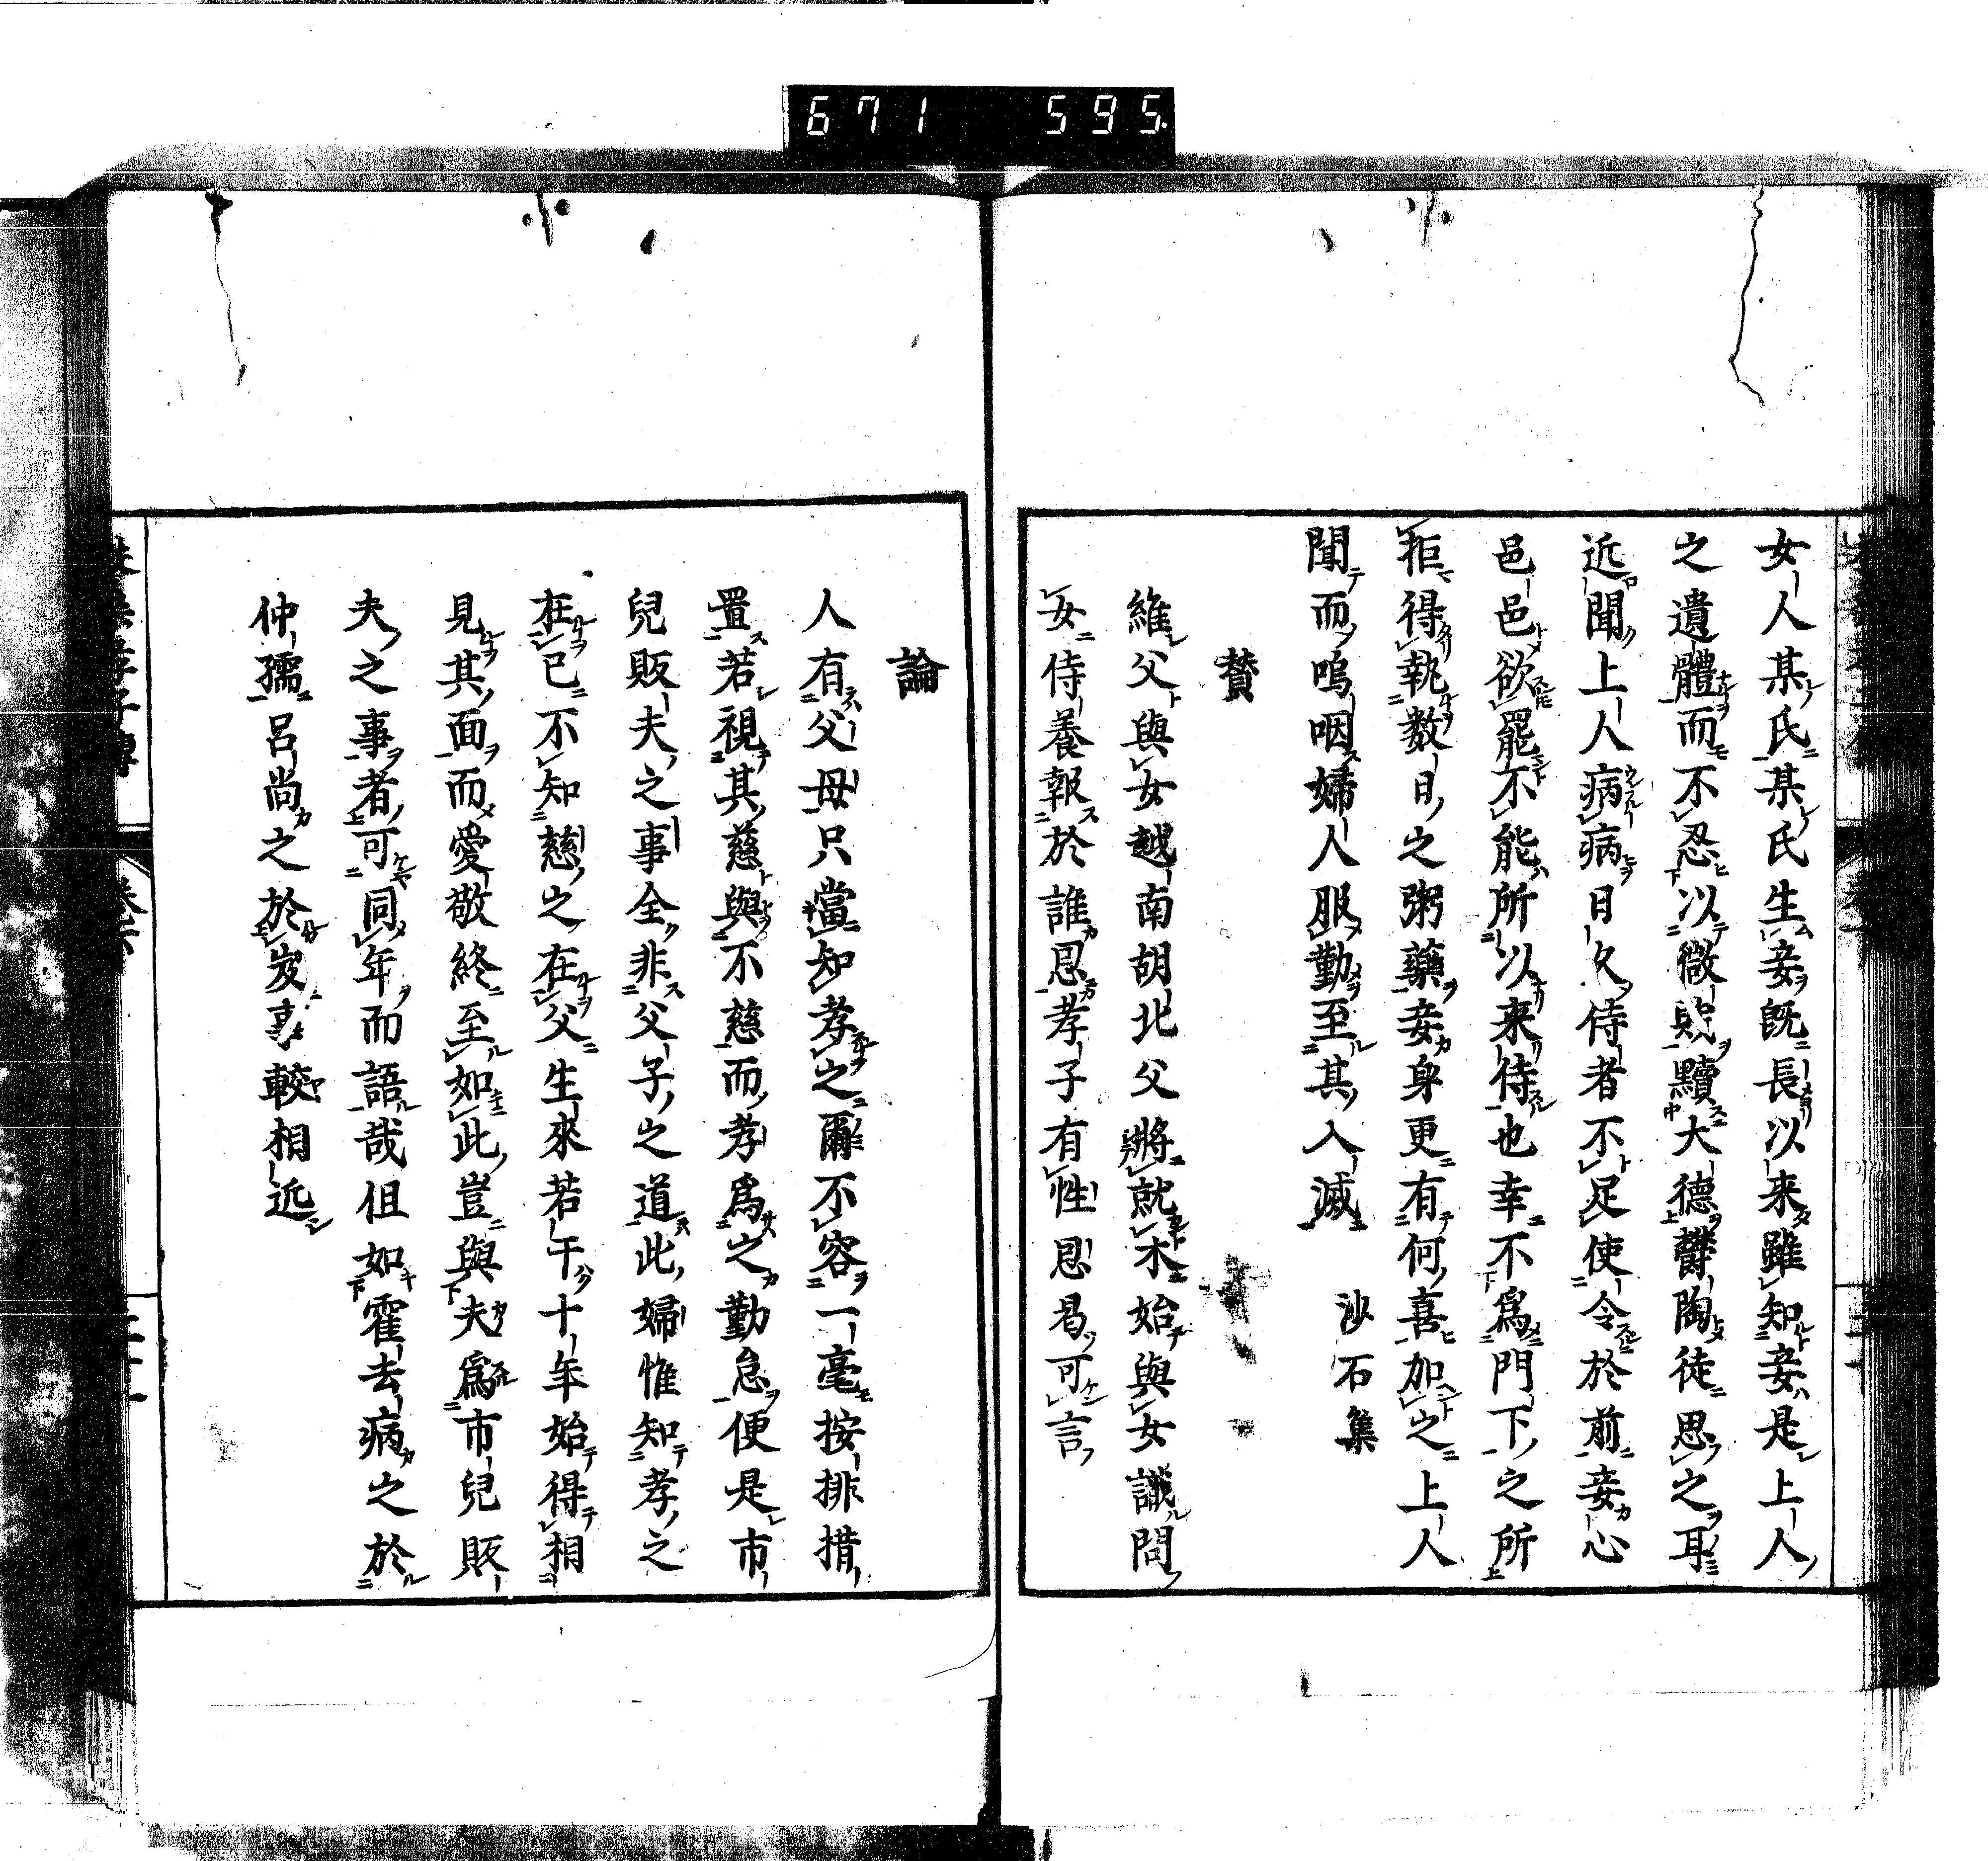 671 595
女人某氏某氏生妾既長以来雖知妾是上人
之遺體而不忍以微賎黷大德欝陶徒思之耳
近聞上人病病日久侍者不足使令於前妾心
邑邑欲罷不能所以来侍也幸不爲門下之所
拒得執数日之粥藥妾身更有何喜加之上人
聞而嗚咽婦人服勤至其入滅 沙石集
賛
維父與女越南胡北父將就木始與女讖問
女侍養報於誰恩孝子有性恩曷可言
論
人有父母只當知孝之爾不容一毫按排措
置若視其慈與不慈而孝爲之勤怠便是市
兒販夫之事全非父子之道此婦惟知孝之
在已不知慈之在父生來若干十年始得相
見其面而愛敬終至如此豈與夫爲市兒販
夫之事者可同年而語哉但如霍去病之於
仲孺呂尚之於岌事較相近